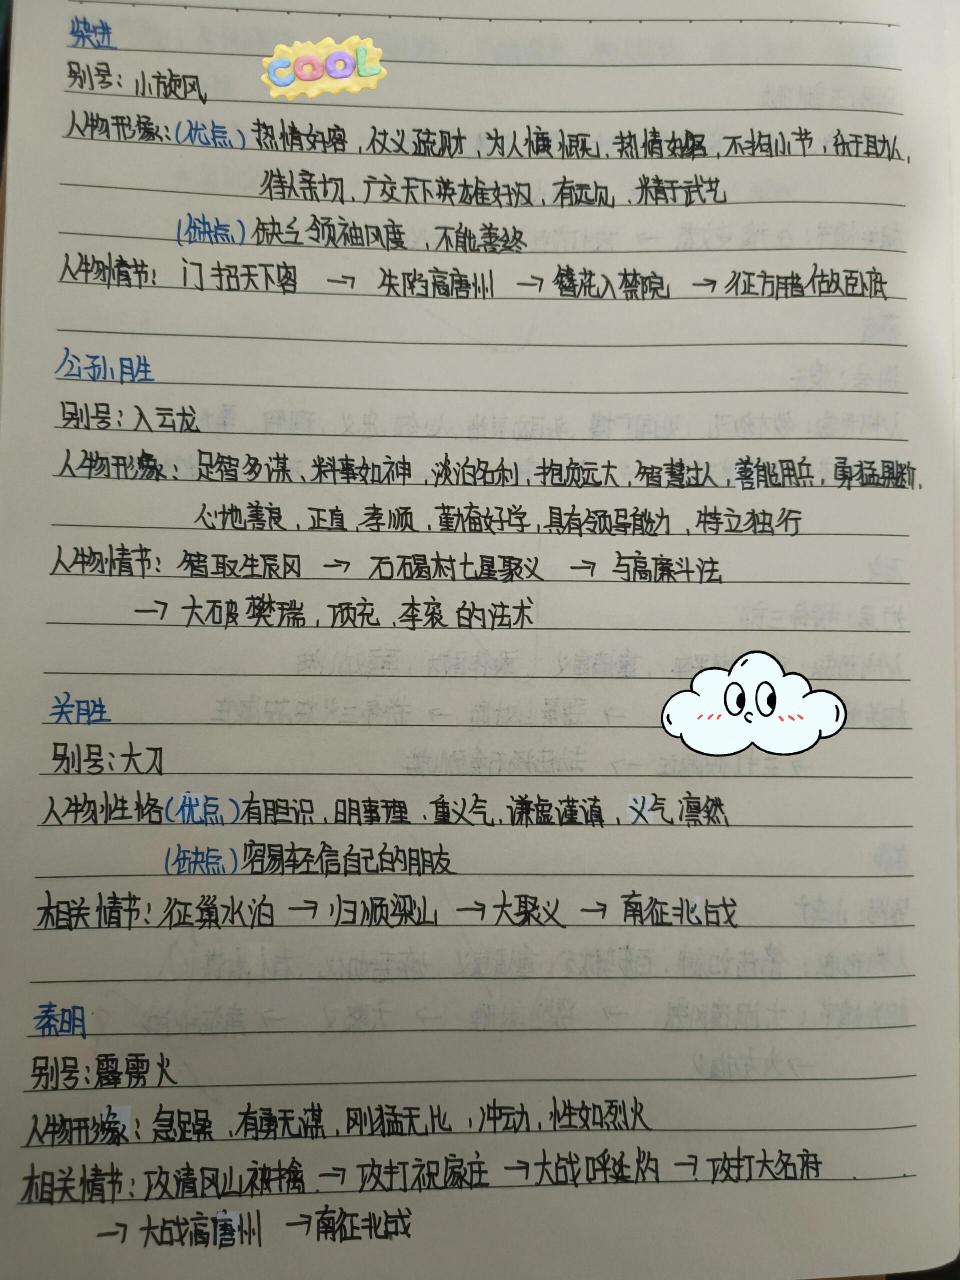 柴进
COOL
别号：小旋风
人物形象：（优点）热情好客，仗义疏财，为人慷慨，热情好客，不拘小节，乐于助人，
待人亲切，广交天下英雄好汉，有远见，精于武艺
（缺点）缺乏领袖风度，不能善终
人物情节：门招天下客 → 失陷高唐州 → 簪花入禁院 → 征方腊做卧底
公孙胜
别号：入云龙
人物形象：足智多谋、料事如神，淡泊名利，抱负远大，智慧过人，善能用兵，勇猛果断，
心地善良，正直，孝顺，勤奋好学，具有领导能力，特立独行
人物情节：智取生辰冈 → 石碣村七星聚义 → 与高廉斗法
→ 大破樊瑞，项充，李衮的法术
关胜
别号：大刀
人物性格（优点）有胆识，明事理，重义气，谦虚谨慎，义气凛然
（缺点）容易轻信自己的朋友
相关情节：征巢水泊 → 归顺梁山 → 大聚义 → 南征北战
秦明
别号：霹雳火
人物形象：急躁，有勇无谋，刚猛无比，冲动，性如烈火
相关情节：攻清风山被擒 → 攻打祝家庄 → 大战呼延灼 → 攻打大名府
→ 大战高唐州 → 南征北战